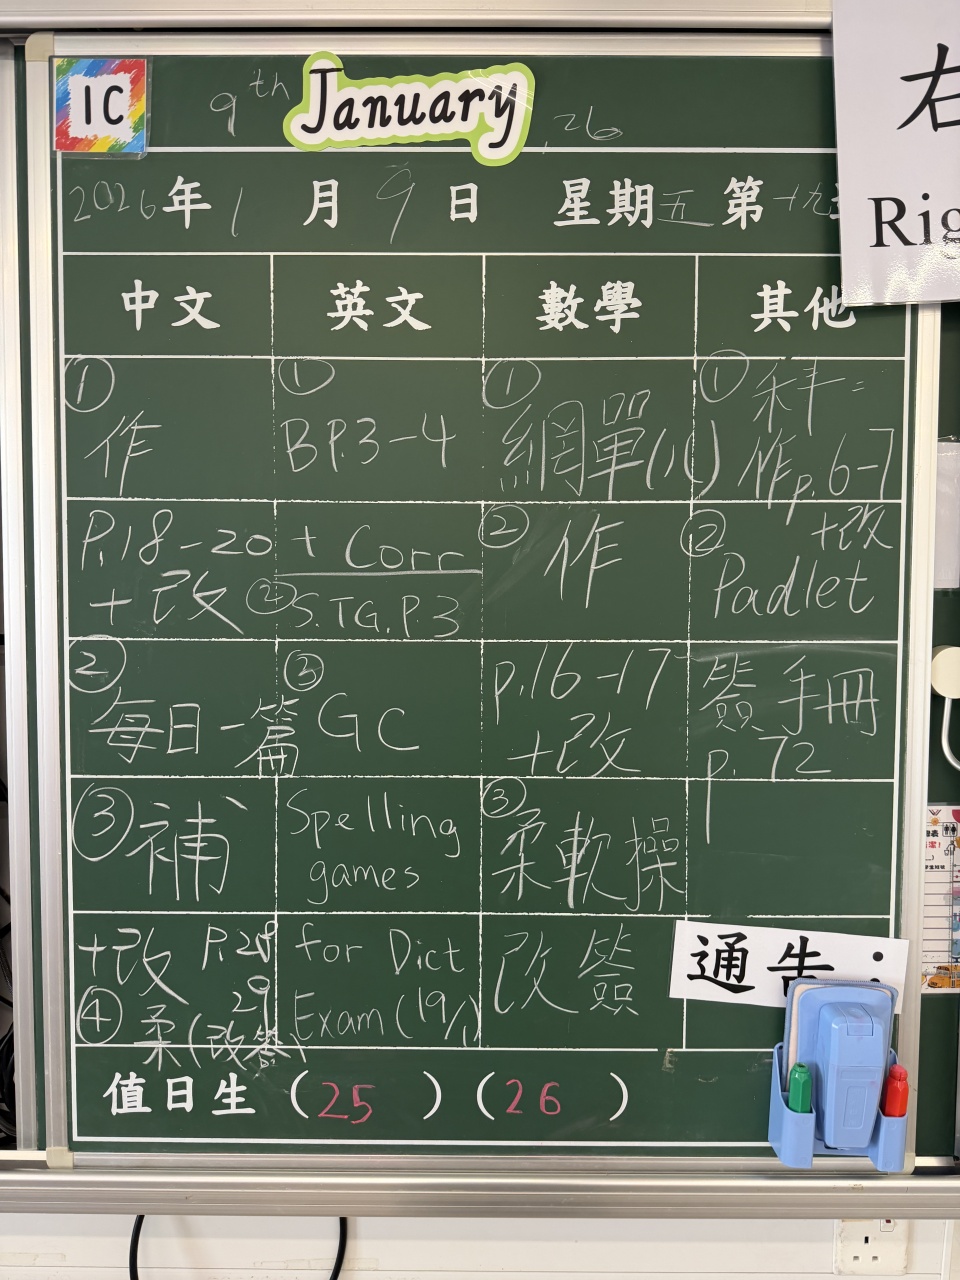 1C
9th January, 26
右
Rig
2026年1月9日 星期五 第十九
中文 英文 數學 其他
① 作
P.18-20
+改
② 每日一篇
③ 補
+改 P.28
29
④ 柔(改簽)
① BP.3-4
+ Corr
② S.TG.P.3
③ GC
Spelling
games
for Dict
Exam (19/1)
① 網單(八)
② 作
p.16-17
+改
③ 柔軟操
改簽
① 科:
作p.6-7
+改
② Padlet
簽手冊
p.72
通告:
值日生(25)(26)